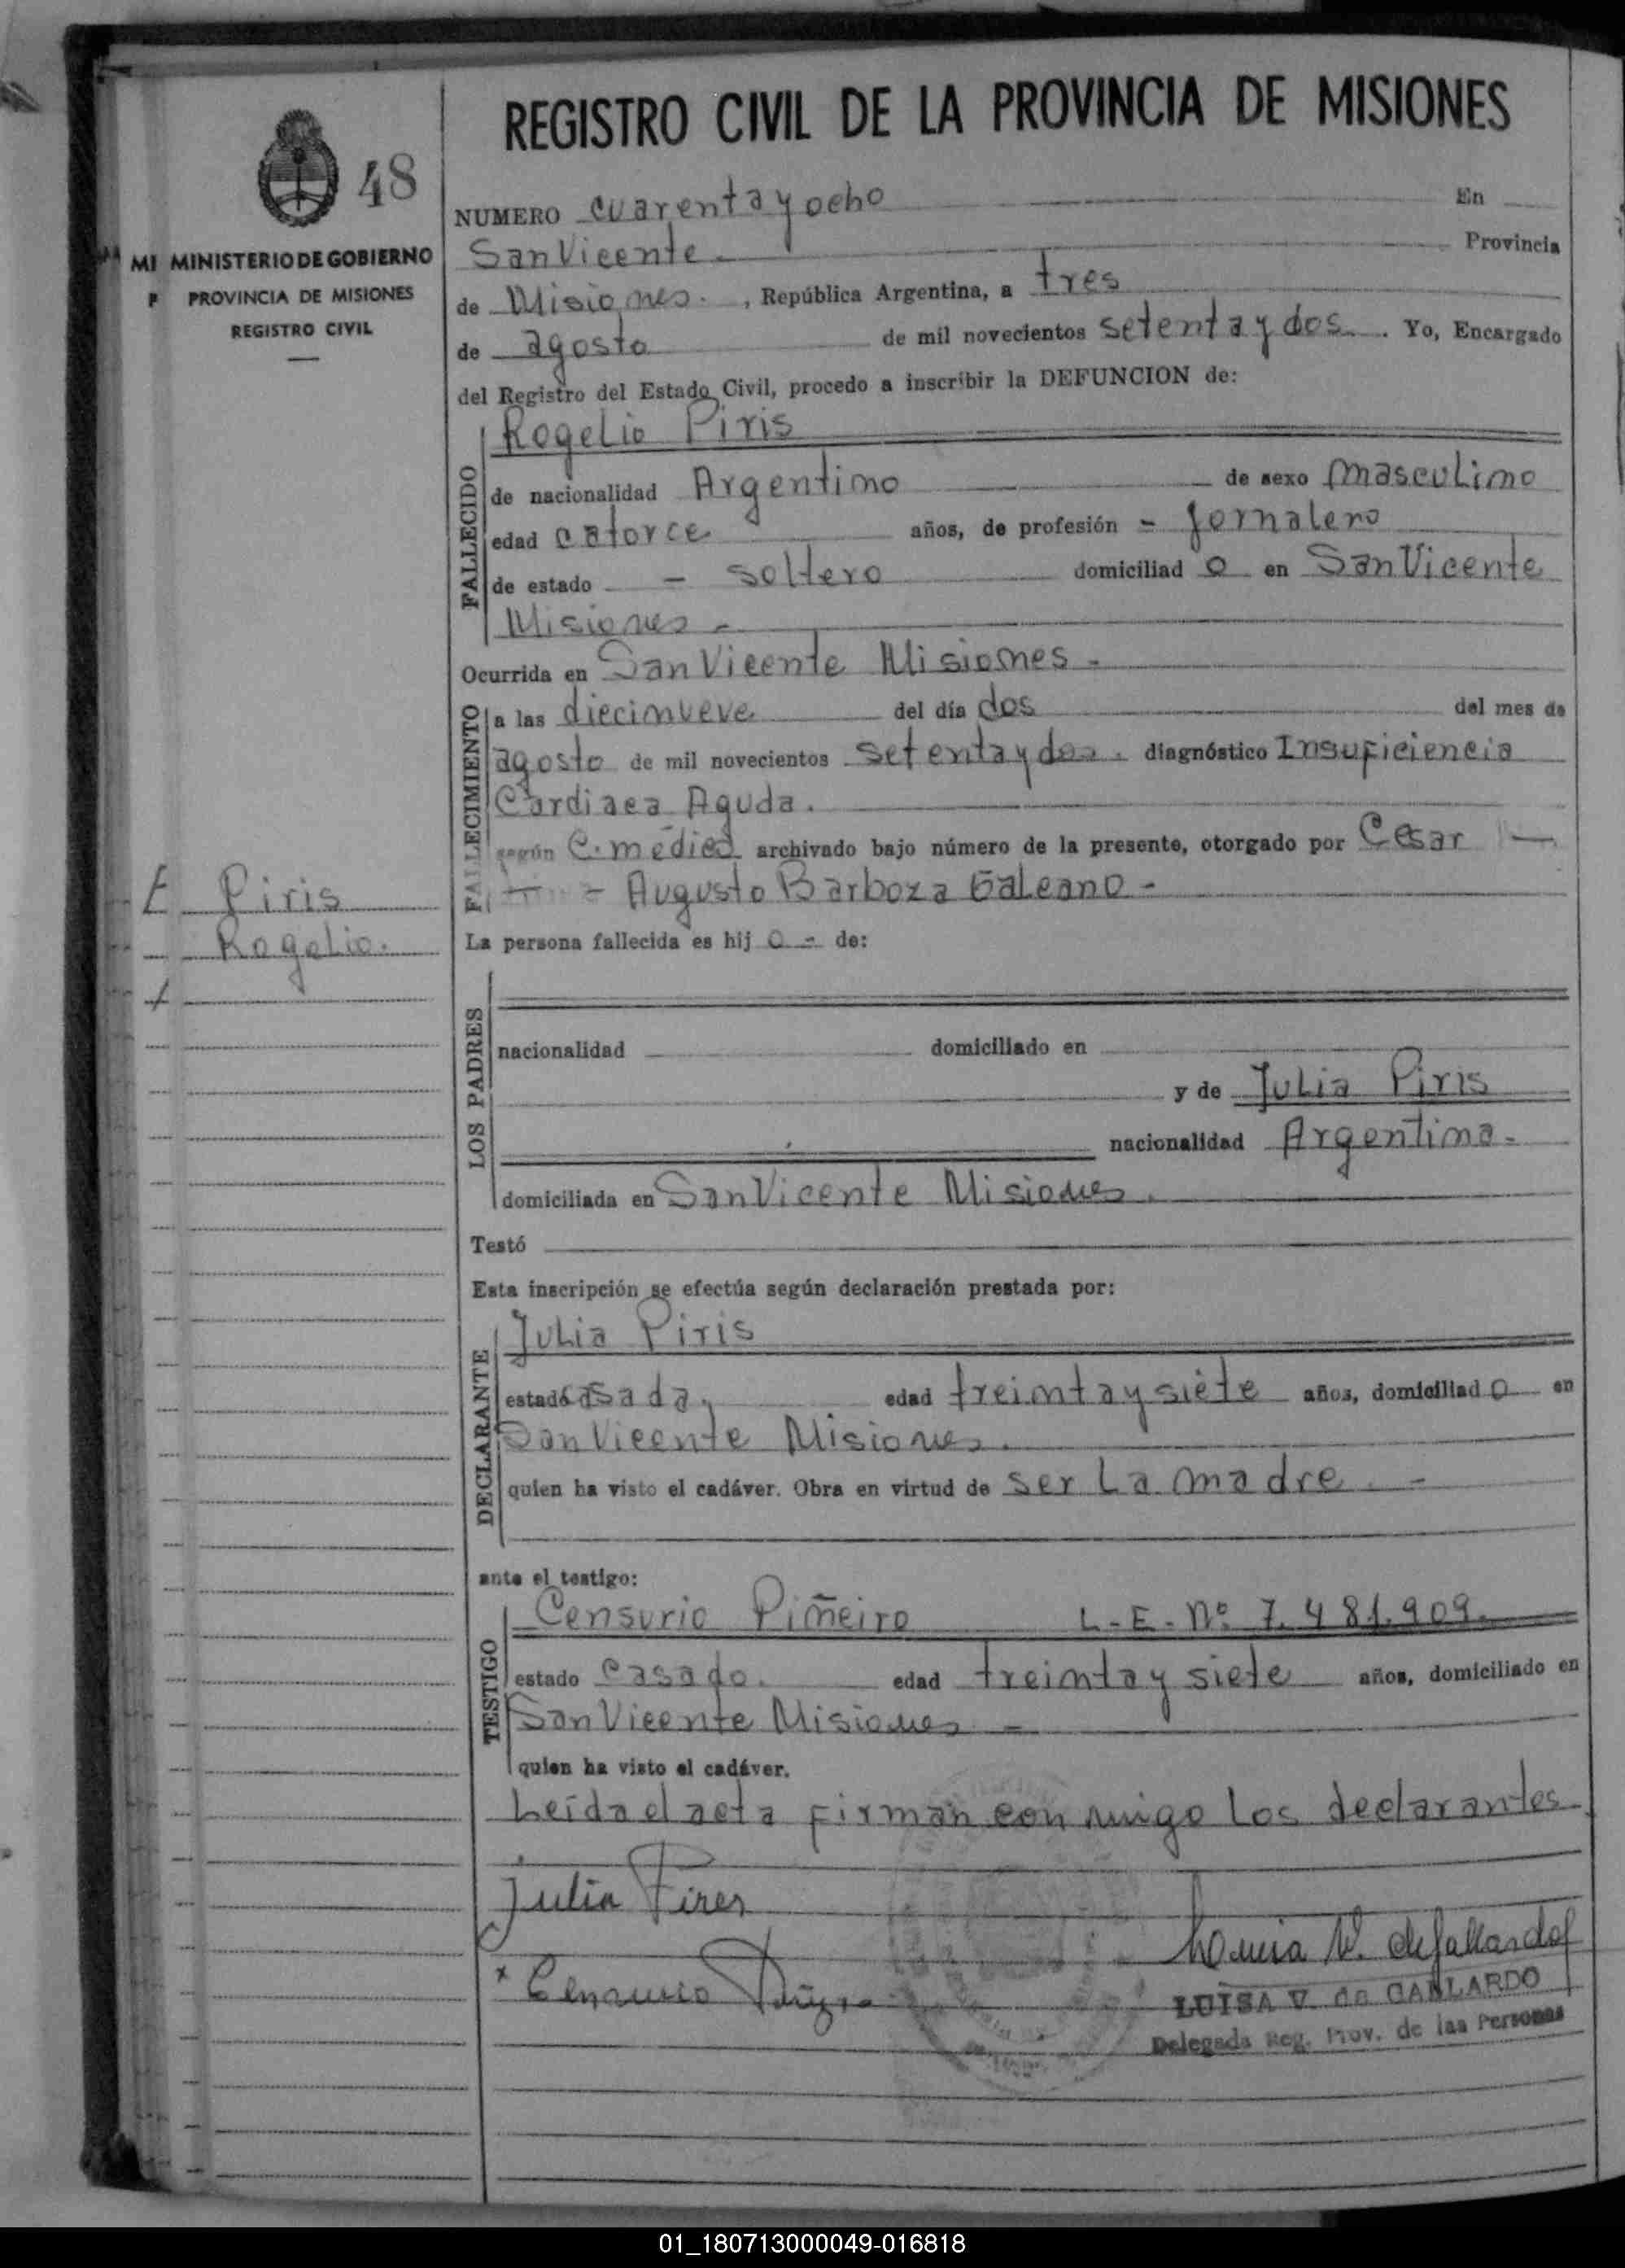 REGISTRO CIVIL DE LA PROVINCIA DE MISIONES
48
MI MINISTERIO DE GOBIERNO
P PROVINCIA DE MISIONES
REGISTRO CIVIL
NUMERO cuarenta y ocho En
San Vicente. Provincia
de Misiones. , República Argentina, a tres
de agosto de mil novecientos setenta y dos. . Yo, Encargado
del Registro del Estado Civil, procedo a inscribir la DEFUNCION de:
FALLECIDO
Rogelio Piris
de nacionalidad Argentino de sexo masculino
edad catorce años, de profesión - Jornalero
de estado - soltero domiciliad o en San Vicente
Misiones -
Ocurrida en San Vicente Misiones -
FALLECIMIENTO
a las diecinueve del día dos del mes de
agosto de mil novecientos setenta y dos. diagnóstico Insuficiencia
Cardiaca Aguda.
según C. médico archivado bajo número de la presente, otorgado por Cesar
- Augusto Barboza Galeano -
E Piris
Rogelio.
La persona fallecida es hij o - de:
LOS PADRES
nacionalidad domiciliado en
y de Julia Piris
nacionalidad Argentina -
domiciliada en San Vicente Misiones.
Testó
Esta inscripción se efectúa según declaración prestada por:
DECLARANTE
Julia Piris
estado casada. edad treinta y siete años, domiciliad o en
San Vicente Misiones.
quien ha visto el cadáver. Obra en virtud de ser La madre. -
ante el testigo:
TESTIGO
Censurio Piñeiro L.E. Nº 7.481.909.
estado casado. edad treinta y siete años, domiciliado en
San Vicente Misiones -
quien ha visto el cadáver.
Leída el acta firman con migo los declarantes
Julia Pires
LUISA V. de GALLARDO
Delegada Reg. Prov. de las Personas
01_180713000049-016818